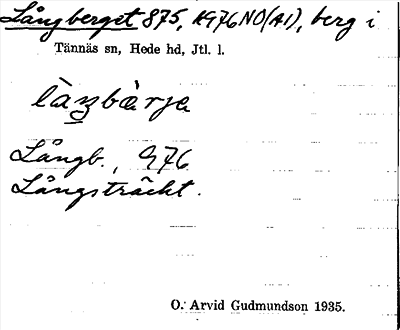 Långberget 875, 1976 NO(A1), berg i
Tännäs sn, Hede hd, Jtl. l.
Långb., 976
Långsträckt.
O. Arvid Gudmundson 1935.